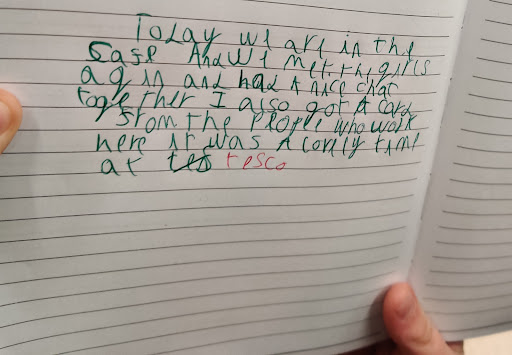 Today we are in the
Cafe And we met the girls
agin and had A nice chat
together I also got A card
From the People who work
here it was A lovely time
at tes tesco